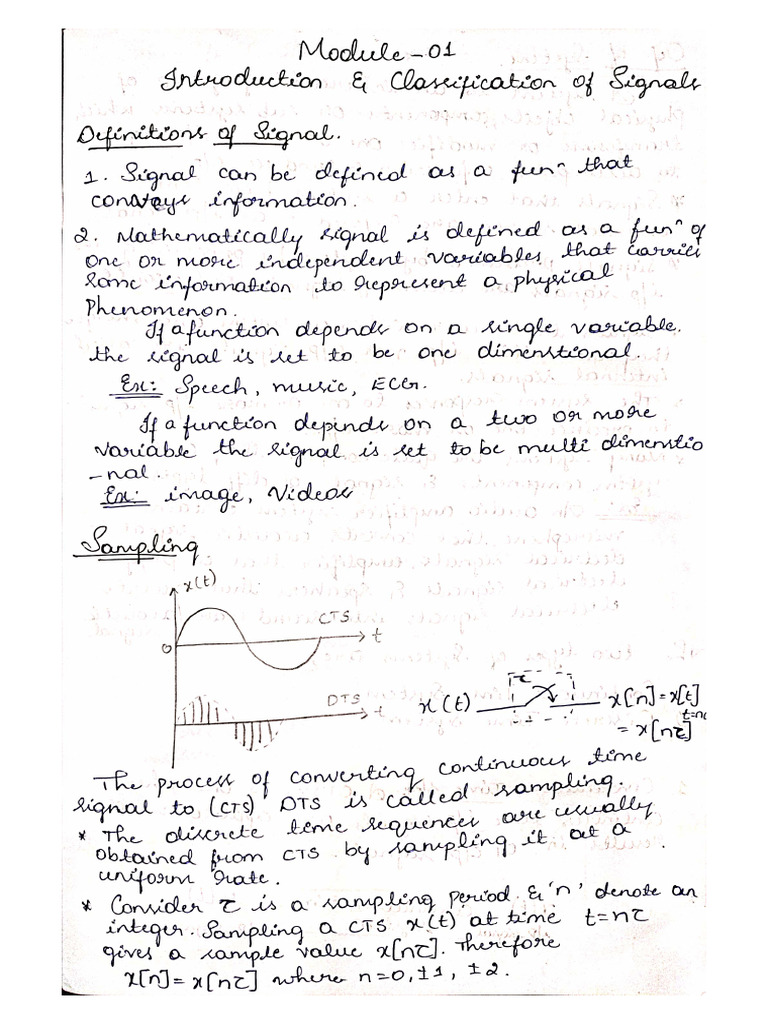 Module-01
Introduction & Classification of Signals
Definitions of Signal.
1. Signal can be defined as a funⁿ that
conveys information.
2. Mathematically signal is defined as a funⁿ of
one or more independent variables, that carries
some information to represent a physical
Phenomenon.
If a function depends on a single variable.
the signal is set to be one dimenstional.
Ex: Speech, music, ECG.
If a function depends on a two or more
variable the signal is set to be multi dimenstio
-nal.
Ex: image, Videos
Sampling
x(t)
CTS
0
t
DTS
t
τ
x(t) x[n]=x[t]
t=nτ
= x[nτ]
The process of converting continuous time
signal to (CTS) DTS is called sampling.
* The discrete time sequences are usually
obtained from CTS by sampling it at a
uniform rate.
* Consider τ is a sampling period & 'n' denote an
integer. Sampling a CTS x(t) at time t=nτ
gives a sample value x[nτ]. Therefore
x[n]=x[nτ] where n=0,±1, ±2.